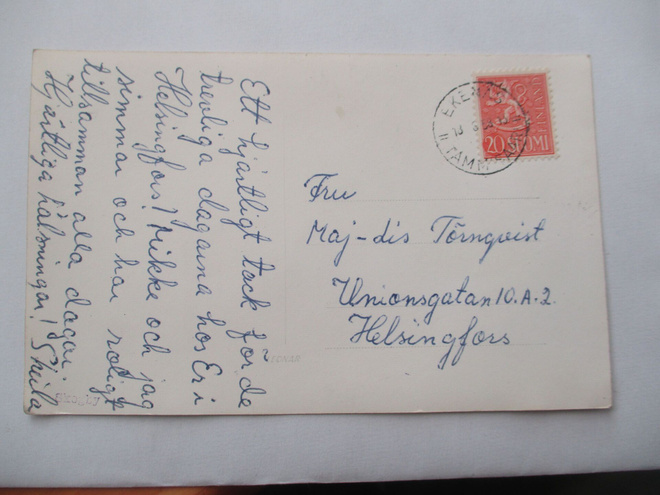 Ett hjärtligt tack för de
trevliga dagarna hos Er i
Helsingfors! Mikke och jag
simmar och har roligt
tillsamman alla dagar.
Hjärtliga hälsningar!
Fru
Maj-dis Törnqvist
Unionsgatan 10.A.2.
Helsingfors
20 SUOMI